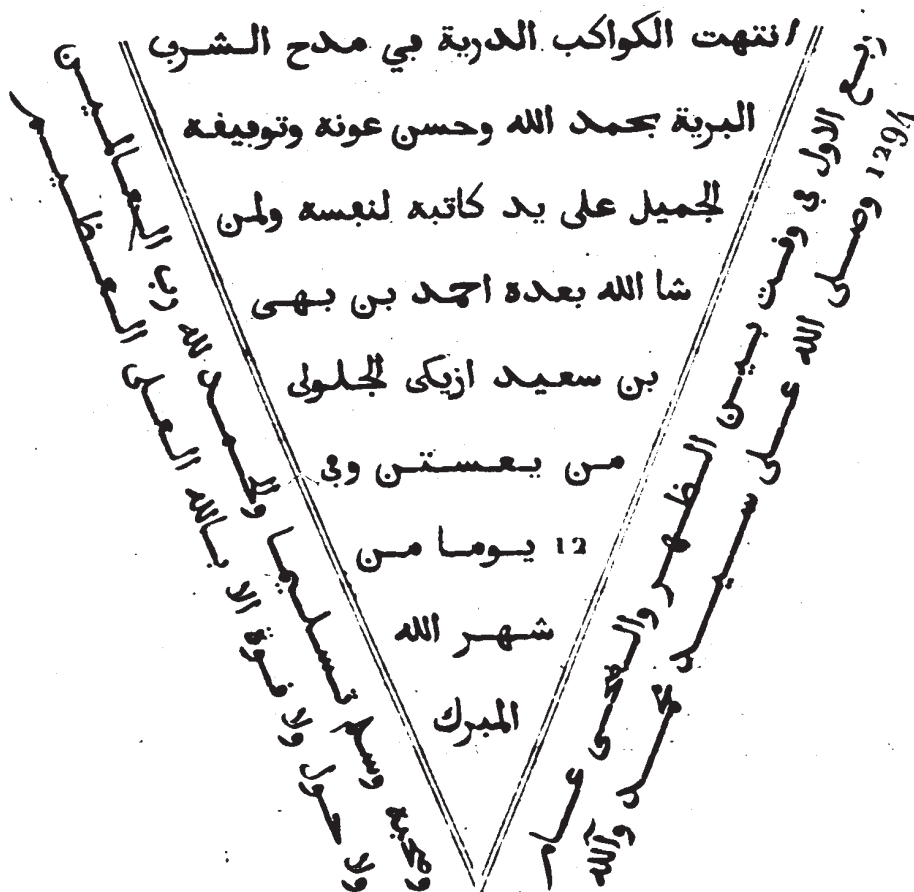 انتهت الكواكب الدرية في مدح الشرف
البرية بحمد الله وحسن عونه وتوفيقه
الجميل على يد كاتبه لنفسه ولمن
شا الله بعده احمد بن بهى
بن سعيد ازيكى الجلولى
من يعستن وفى
12 يوما من
شهر الله
المبرك
ربيع الاول في وقت بين الظهر والضحى عام
1294 وصلى الله على سيد محمد وآلله
وصحبه وسلم تسليما والحمد لله رب العالمين
ولا حول ولا قوة الا بالله العلى العظيم